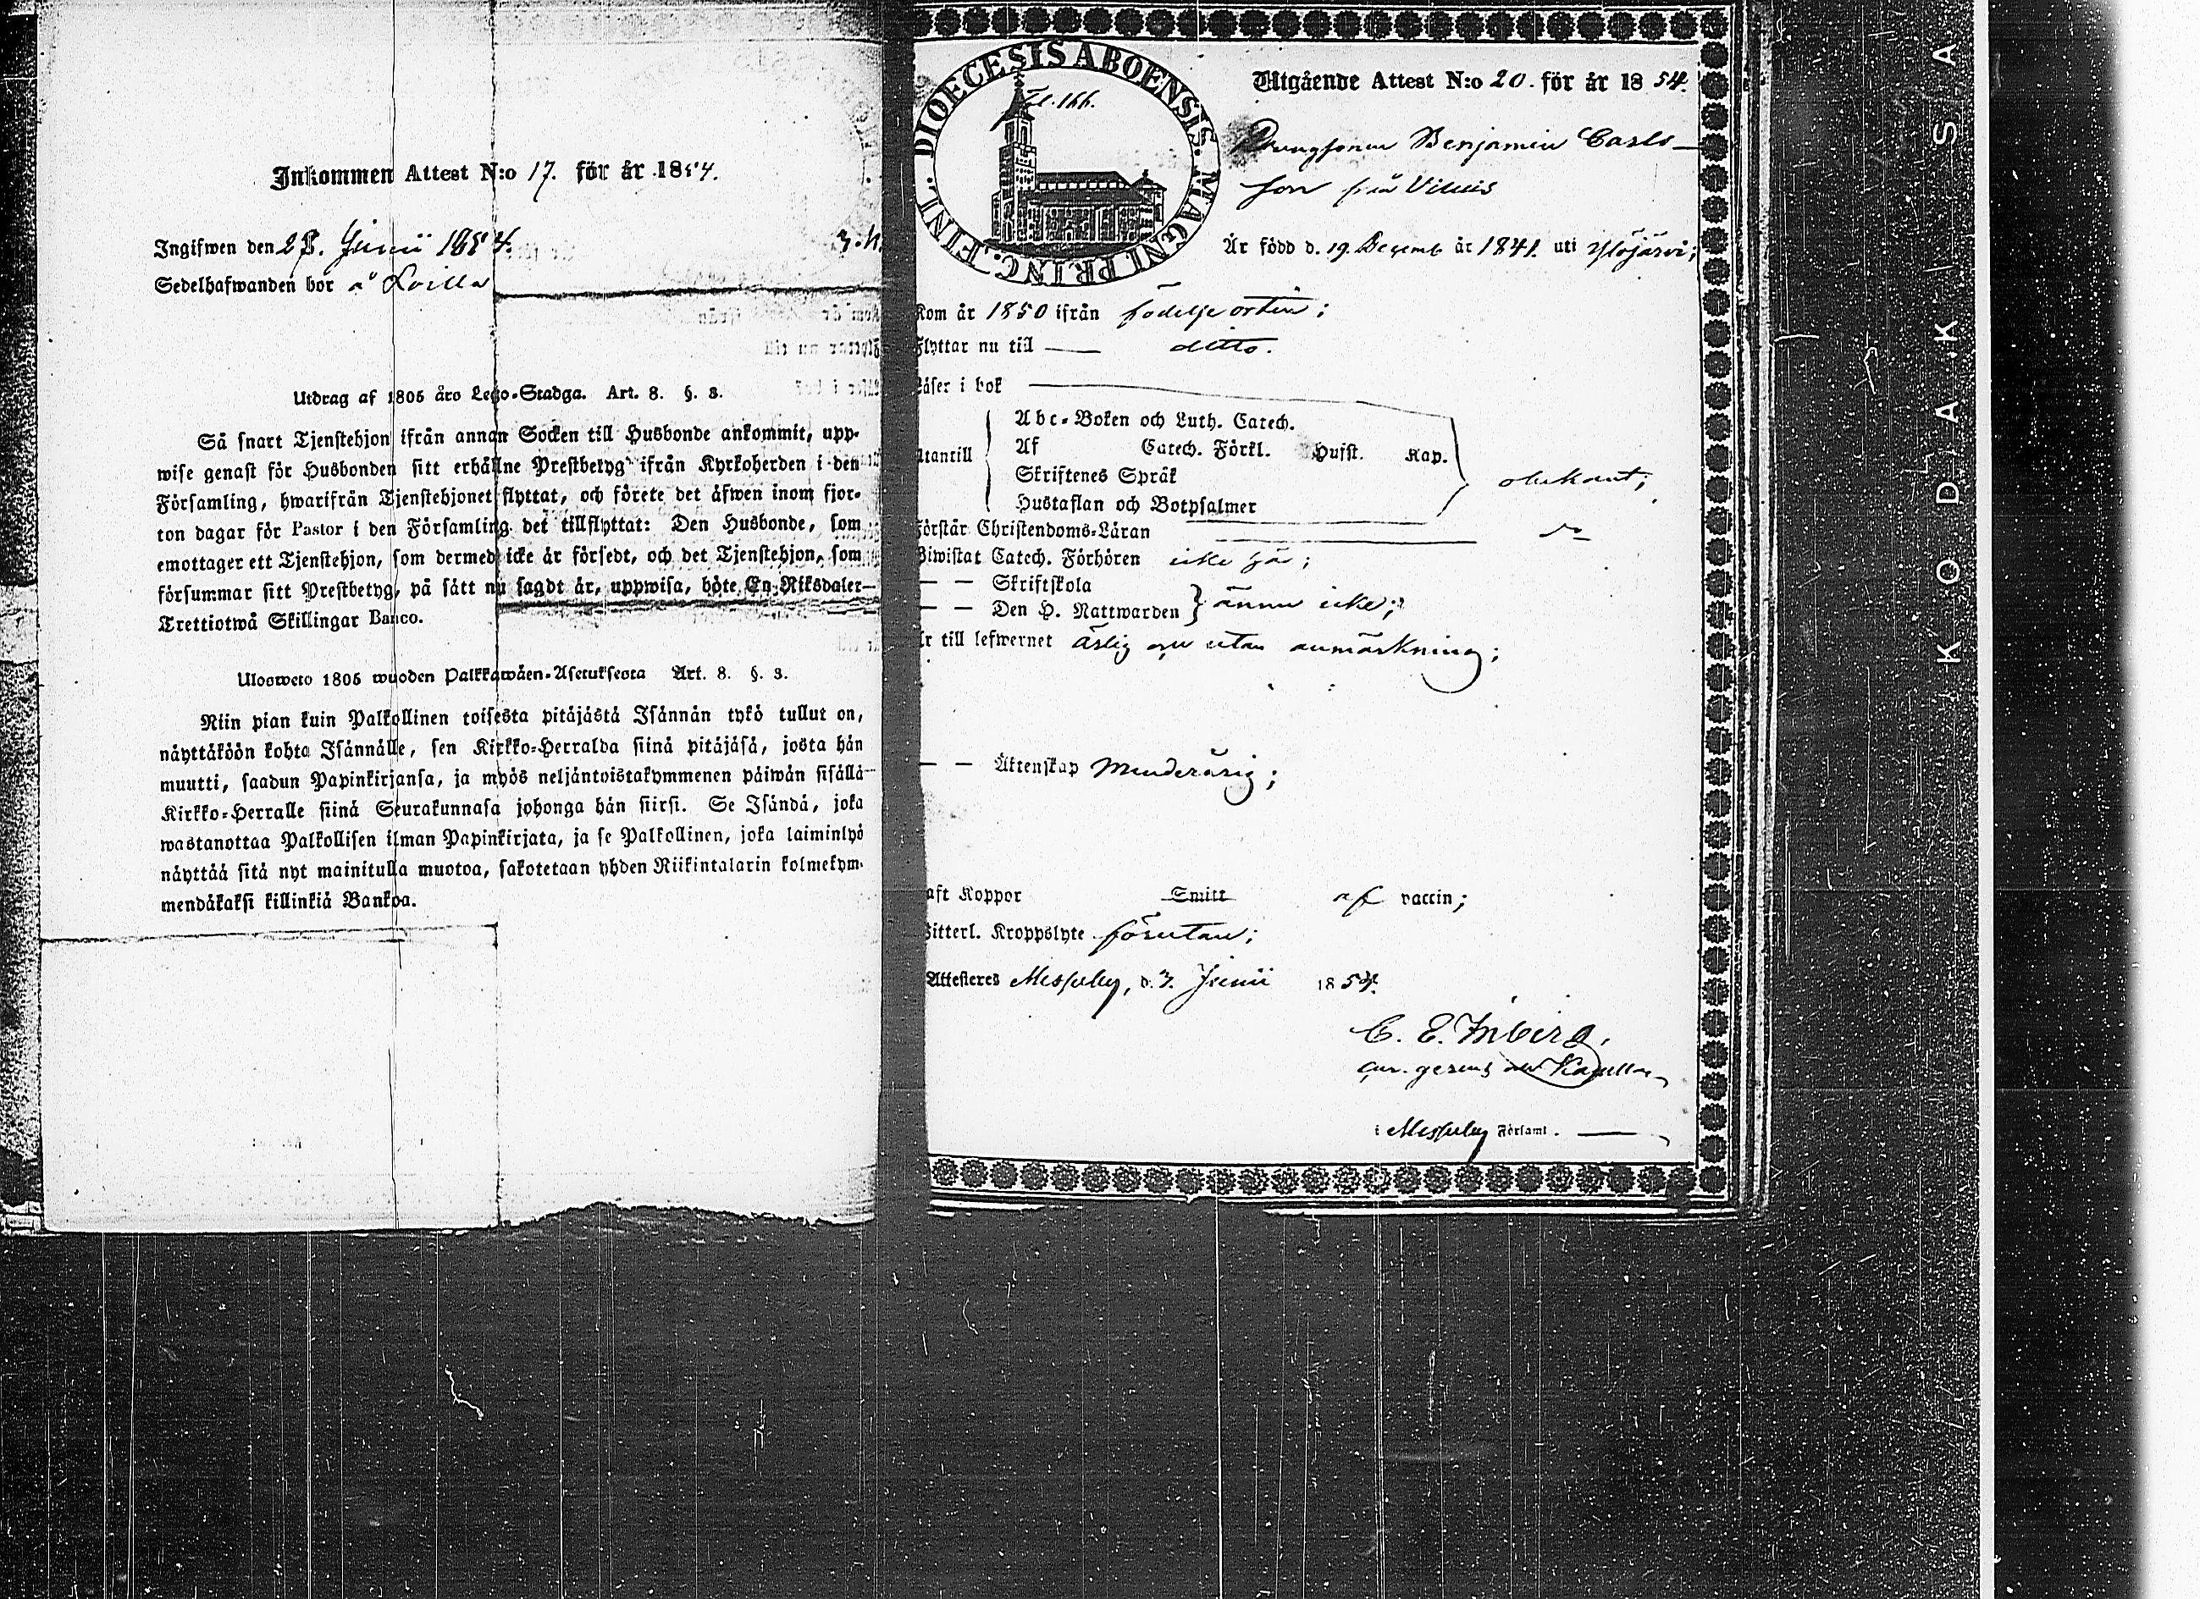 Inkommen Attest N:o 17. för år 1854.
Ingifwen den 23. Junii 1854.
Sedelhafwanden bor å Loilla
Utdrag af 1805 års Lego-Stadga. Art. 8. §. 3.
Så snart Tjenstehjon ifrån annan Socken till Husbonde ankommit, upp-
wise genast för Husbonden sitt erhållne Prestbetyg ifrån Kyrkoherden i den
Församling, hwarifrån Tjenstehjonet flyttat, och förete det äfwen inom fjor-
ton dagar för Pastor i den Församling det tillflyttat: Den Husbonde, som
emottager ett Tjenstehjon, som dermed icke är försedt, och det Tjenstehjon, som
försummar sitt Prestbetyg, på sätt nu sagdt är, uppwisa, böte En Riksdaler
Trettiotwå Skillingar Banco.
Ulosweto 1805 wuoden Palkkawäen-Asetuksesta Art. 8. §. 3.
Niin pian kuin Palkollinen toisesta pitäjästä Isännän tykö tullut on,
näyttäköön kohta Isännälle, sen Kirkko-Herralda siinä pitäjäsä, josta hän
muutti, saadun Papinkirjansa, ja myös neljäntoistakymmenen päiwän sisällä
Kirkko-Herralle siinä Seurakunnasa johonga hän siirsi. Se Isändä, joka
wastanottaa Palkollisen ilman Papinkirjata, ja se Palkollinen, joka laiminlyö
näyttää sitä nyt mainitulla muotoa, sakotetaan yhden Riikintalarin kolmekym-
mendäkaksi killinkiä Bankoa.
DIOECESIS ABOENSIS. MAGNI PRINC. FINL.
Fol. 166.
Utgående Attest N:o 20. för år 1854.
Drengsonen Benjamin Carls-
son från Vilusis
Är född d. 19 Decemb år 1841. uti Ylöjärvi;
Kom år 1850 ifrån födelseorten;
Flyttar nu till — ditto.
Läser i bok
Abc-Boken och Luth. Catech.
Utantill Af Catech. Förkl. Husst. Kap. obekant;
Skriftenes Språk
Hustaflan och Botpsalmer
Förstår Christendoms-Läran
Biwistat Catech. Förhören icke här;
— — Skriftskola
— — Den H. Nattwarden ännu icke;
Är till lefwernet ärlig och utan anmärkning;
— — Äktenskap Minderårig;
Haft Koppor Smitt af vaccin;
Witterl. Kroppslyte förutan;
Attesteres Messuby, d. 3. Junii 1854.
C. E. Inberg.
cur. gerens
i Messuby Församl.
KODAK SA